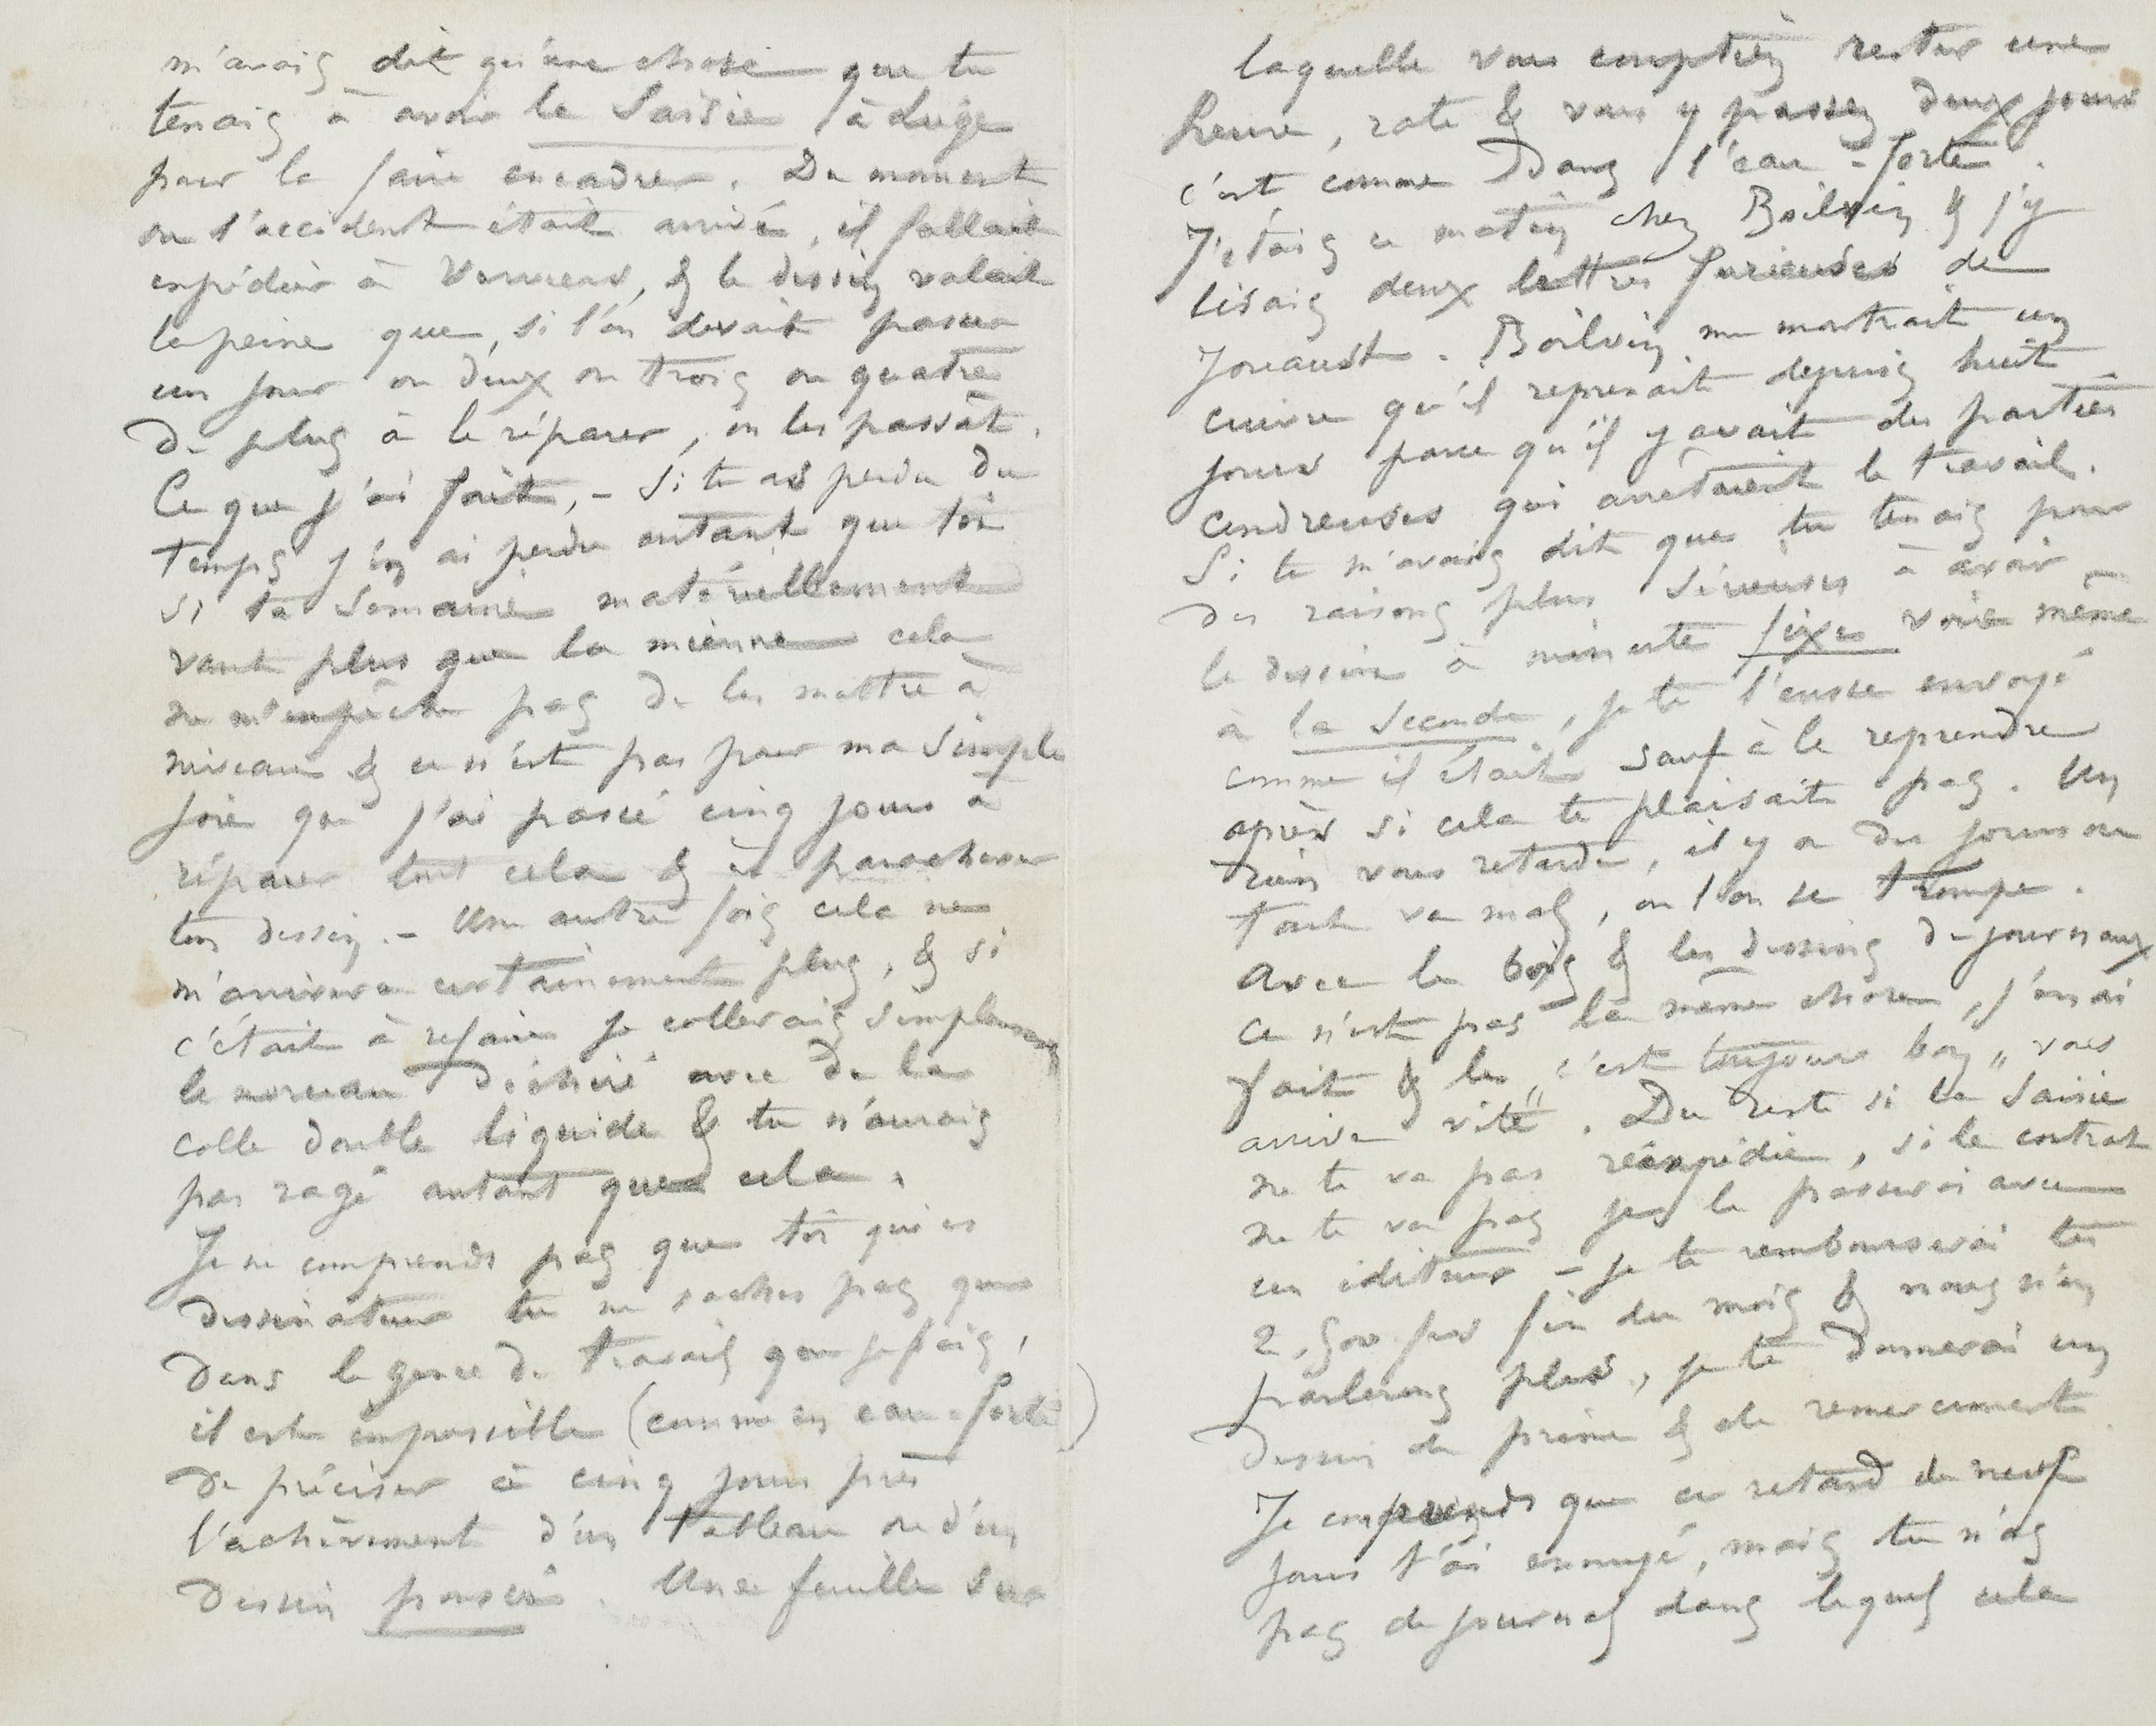 m'avais dit qu'une chose que tu
tenais à avoir le Saisie à Liège
pour la faire encadrer. Du moment
où l'accident était arrivé, il fallait
expédier à Verviers, & le dessin valait
la peine que, si l'on devait passer
un jour ou deux ou trois ou quatre
de plus à le réparer, on les passât.
Ce que j'ai fait, – Si tu as perdu du
temps j'en ai perdu autant que toi
si ta semaine matériellement
vaut plus que la mienne cela
ne m'empêche pas de les mettre à
niveau & ce n'est pas pour ma simple
joie que j'ai passé cinq jours à
réparer tout cela & à parachever
ton dessin. – Une autre fois cela ne
m'arrivera certainement plus, & si
c'était à refaire je collerais simplement
le morceau déchiré avec de la
colle double liquide & tu n'aurais
pas ragé autant que cela.
Je ne comprends pas que toi qui es
dessinateur tu ne saches pas que
dans le genre de travail que je fais,
il est impossible (comme en eau-forte)
de préciser à cinq jours près
l'achèvement d'un tableau ou d'un
dessin poussé. Une feuille sur
laquelle vous comptiez rester une
heure, rate & vous y passez deux jours
c'est comme dans l'eau-forte.
J'étais ce matin chez Boilvin & j'y
lisais deux lettres furieuses de
Jouaust. Boilvin me montrait un
cuivre qu'il reprenait depuis huit
jours parce qu'il y avait des parties
cendreuses qui arrêtaient le travail.
Si tu m'avais dit que tu tenais pour
des raisons plus sérieuses à avoir
le dessin à minute fixe voire même
à la seconde, je te l'eusse envoyé
comme il était sauf à le reprendre
après si cela te plaisait pas. Un
rien vous retarde, il y a des jours où
tout va mal, où l'on se trompe.
Avec le bois & les dessins de journaux
ce n'est pas la même chose, j'en ai
fait & le „c'est toujours bon" vous
arrive vite". Du reste si la Saisie
ne te va pas réexpédie, si le contrat
ne te va pas je le passerai avec
un éditeur – je te rembourserai tes
2,500 frs fin du mois & nous n'en
parlerons plus, je te donnerai un
dessin de prime & de remerciement
Je comprends que ce retard de neuf
jours t'ai ennuyé, mais tu n'as
pas de journal dans lequel cela